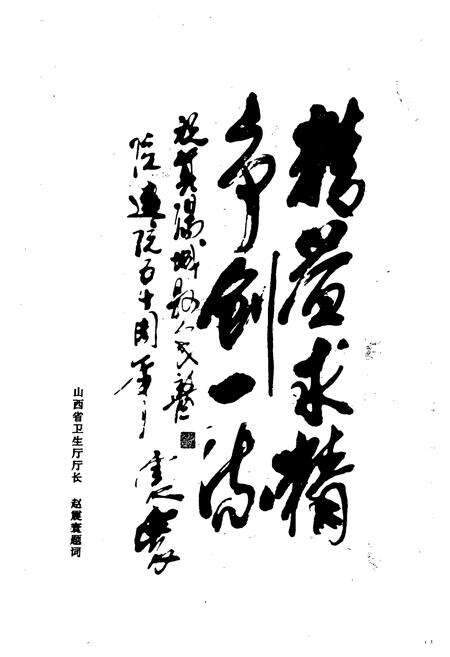 精益求精
争创一流
祝贺阳城县人民医
院建院五十周年
山西省卫生厅厅长 赵震寰题词